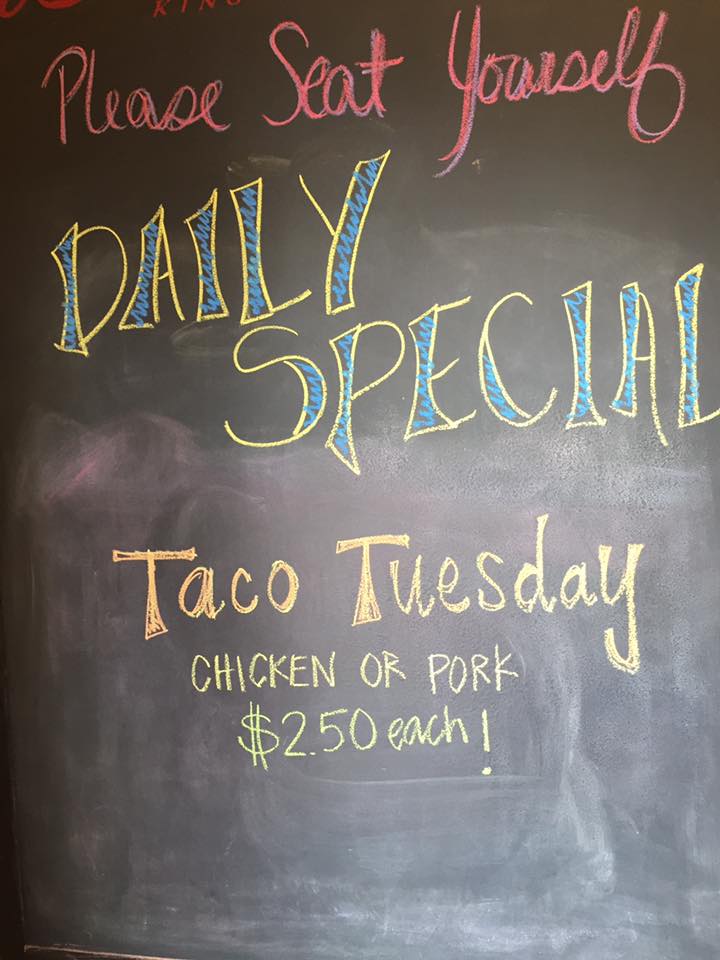 KING
Please Seat Yourself
DAILY
SPECIAL
Taco Tuesday
CHICKEN OR PORK
$2.50 each!